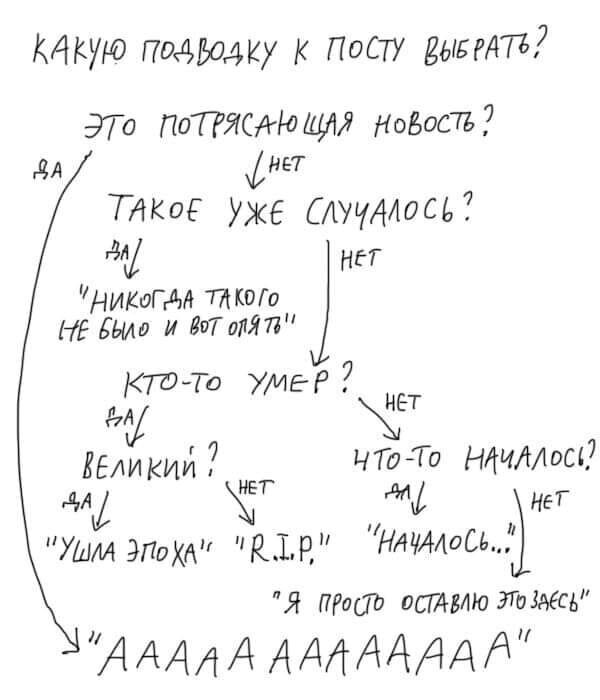 КАКУЮ ПОДВОДКУ К ПОСТУ ВЫБРАТЬ?
ЭТО ПОТРЯСАЮЩАЯ НОВОСТЬ?
ДА
НЕТ
ТАКОЕ УЖЕ СЛУЧАЛОСЬ?
ДА
НЕТ
"НИКОГДА ТАКОГО
НЕ БЫЛО И ВОТ ОПЯТЬ"
КТО-ТО УМЕР?
ДА
НЕТ
ВЕЛИКИЙ?
ЧТО-ТО НАЧАЛОСЬ?
ДА
НЕТ
ДА
НЕТ
"УШЛА ЭПОХА" "R.I.P." "НАЧАЛОСЬ..."
"Я ПРОСТО ОСТАВЛЮ ЭТО ЗДЕСЬ"
"ААААА АААААААА"